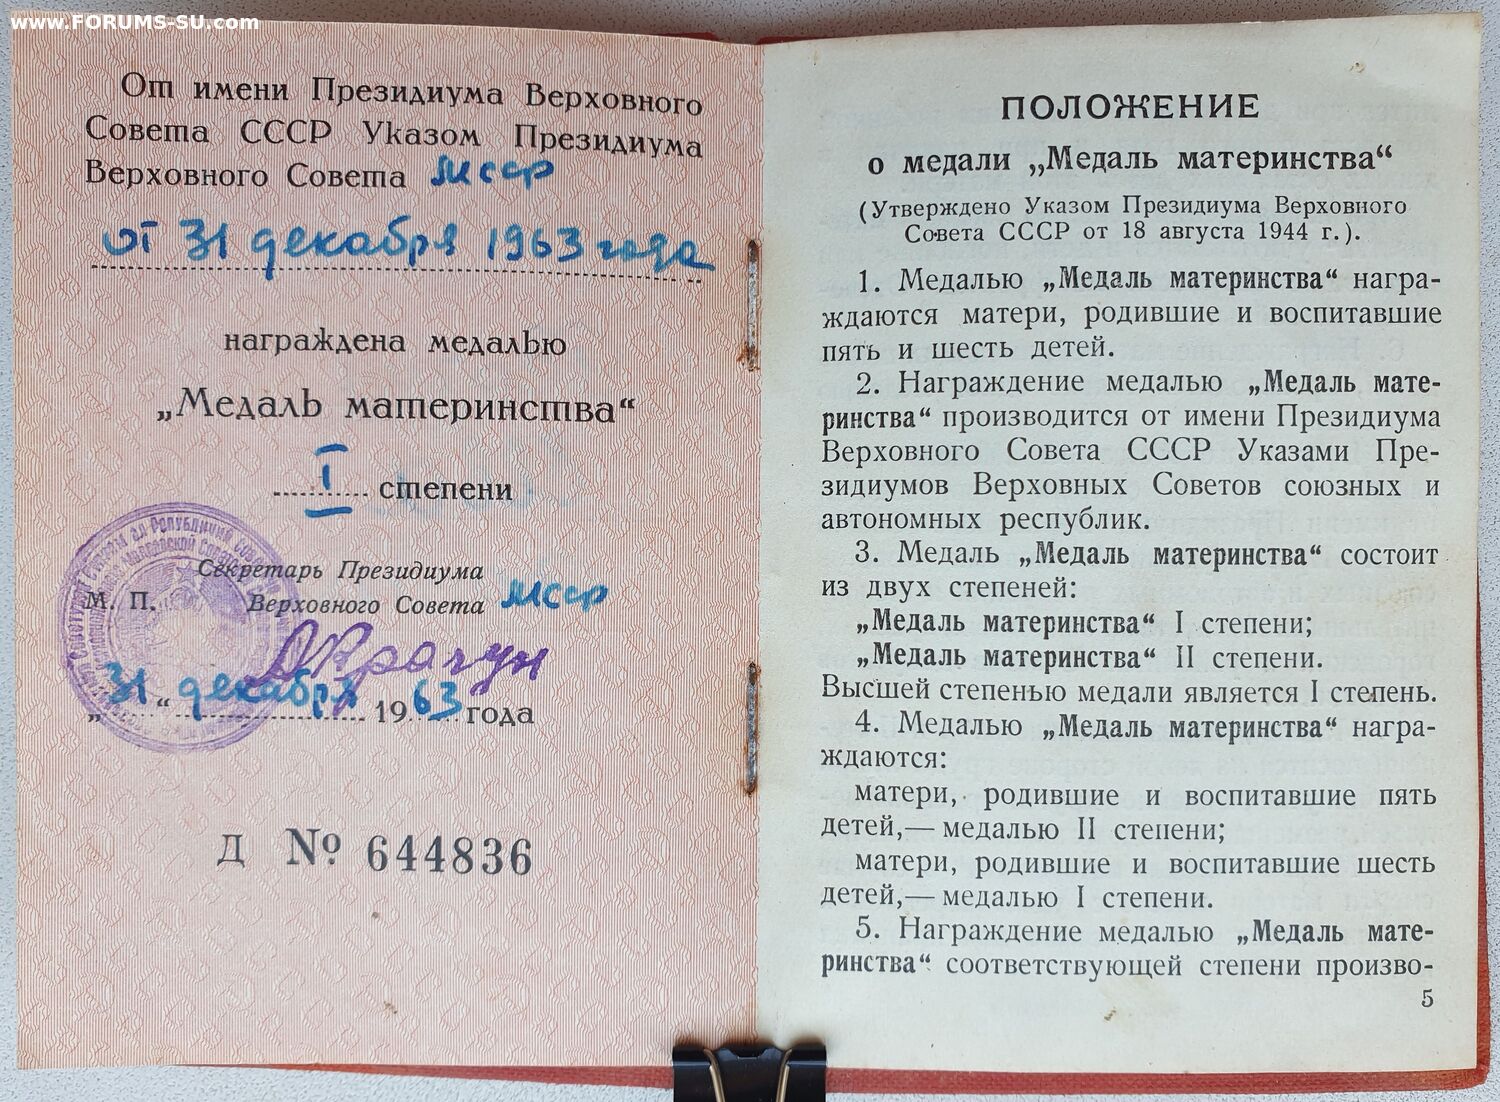 www.FORUMS-SU.com
От имени Президиума Верховного
Совета СССР Указом Президиума
Верховного Совета МССР
от 31 декабря 1963 года
награждена медалью
„Медаль материнства“
I степени
Секретарь Президиума
М. П. Верховного Совета МССР
„31“ декабря 1963 года
Д № 644836
ПОЛОЖЕНИЕ
о медали „Медаль материнства“
(Утверждено Указом Президиума Верховного
Совета СССР от 18 августа 1944 г.).
1. Медалью „Медаль материнства“ награ-
ждаются матери, родившие и воспитавшие
пять и шесть детей.
2. Награждение медалью „Медаль мате-
ринства“ производится от имени Президиума
Верховного Совета СССР Указами Пре-
зидиумов Верховных Советов союзных и
автономных республик.
3. Медаль „Медаль материнства“ состоит
из двух степеней:
„Медаль материнства“ I степени;
„Медаль материнства“ II степени.
Высшей степенью медали является I степень.
4. Медалью „Медаль материнства“ награ-
ждаются:
матери, родившие и воспитавшие пять
детей,— медалью II степени;
матери, родившие и воспитавшие шесть
детей,— медалью I степени.
5. Награждение медалью „Медаль мате-
ринства“ соответствующей степени произво-
5